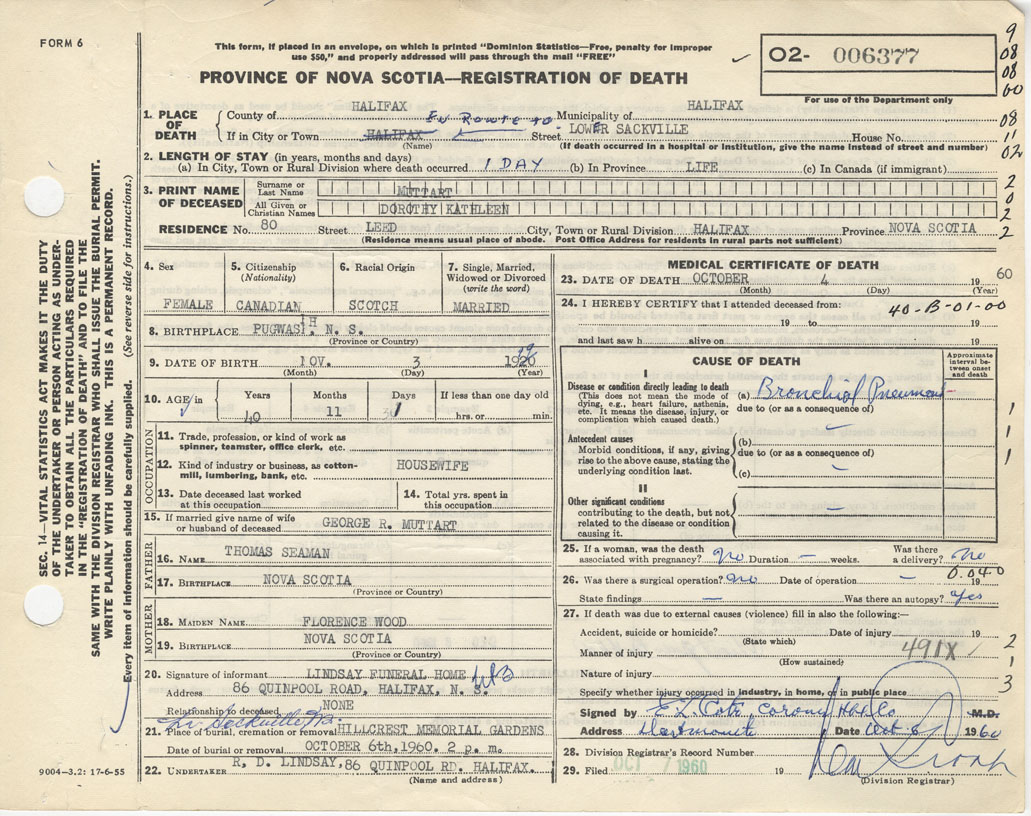 FORM 6
This form, if placed in an envelope, on which is printed "Dominion Statistics—Free, penalty for improper
use $50," and properly addressed will pass through the mail "FREE"
PROVINCE OF NOVA SCOTIA—REGISTRATION OF DEATH
02- 006377
For use of the Department only
9
08
08
60
08
11
02
2
0
2
2
SEC. 14—VITAL STATISTICS ACT MAKES IT THE DUTY
OF THE UNDERTAKER OR PERSON ACTING AS UNDER-
TAKER TO OBTAIN ALL THE PARTICULARS REQUIRED
IN THE "REGISTRATION OF DEATH" AND TO FILE THE
SAME WITH THE DIVISION REGISTRAR WHO SHALL ISSUE THE BURIAL PERMIT.
WRITE PLAINLY WITH UNFADING INK. THIS IS A PERMANENT RECORD.
Every item of information should be carefully supplied. (See reverse side for instructions.)
1. PLACE OF DEATH
County of HALIFAX En Route to Municipality of HALIFAX
If in City or Town HALIFAX Street LOWER SACKVILLE House No.
(Name) (If death occurred in a hospital or institution, give the name instead of street and number)
2. LENGTH OF STAY (in years, months and days)
(a) In City, Town or Rural Division where death occurred 1 DAY (b) In Province LIFE (c) In Canada (if immigrant)
3. PRINT NAME OF DECEASED
Surname or Last Name MUTTART
All Given or Christian Names DOROTHY KATHLEEN
RESIDENCE No. 80 Street LEED City, Town or Rural Division HALIFAX Province NOVA SCOTIA
(Residence means usual place of abode. Post Office Address for residents in rural parts not sufficient)
4. Sex
FEMALE
5. Citizenship (Nationality)
CANADIAN
6. Racial Origin
SCOTCH
7. Single, Married, Widowed or Divorced (write the word)
MARRIED
8. BIRTHPLACE PUGWASH, N. S.
(Province or Country)
9. DATE OF BIRTH NOV. 3 1920
(Month) (Day) (Year)
10. AGE in
Years Months Days If less than one day old
40 11 1 hrs. or min.
OCCUPATION
11. Trade, profession, or kind of work as
spinner, teamster, office clerk, etc.
12. Kind of industry or business, as cotton- HOUSEWIFE
mill, lumbering, bank, etc.
13. Date deceased last worked
at this occupation
14. Total yrs. spent in
this occupation
15. If married give name of wife
or husband of deceased GEORGE R. MUTTART
FATHER
16. NAME THOMAS SEAMAN
17. BIRTHPLACE NOVA SCOTIA
(Province or Country)
MOTHER
18. MAIDEN NAME FLORENCE WOOD
19. BIRTHPLACE NOVA SCOTIA
(Province or Country)
20. Signature of informant LINDSAY FUNERAL HOME
Address 86 QUINPOOL ROAD, HALIFAX, N. S.
Relationship to deceased NONE
Lr. Sackville N.S.
21. Place of burial, cremation or removal HILLCREST MEMORIAL GARDENS
Date of burial or removal OCTOBER 6th,1960. 2 p. m.
22. UNDERTAKER R, D. LINDSAY,86 QUINPOOL RD. HALIFAX.
(Name and address)
9004-3.2: 17-6-55
MEDICAL CERTIFICATE OF DEATH
23. DATE OF DEATH OCTOBER 4 19 60
(Month) (Day) (Year)
24. I HEREBY CERTIFY that I attended deceased from: 40-B-01-00
19 to 19
and last saw h alive on 19
CAUSE OF DEATH
Approximate interval between onset and death
I
Disease or condition directly leading to death
(This does not mean the mode of
dying, e.g., heart failure, asthenia,
etc. It means the disease, injury, or
complication which caused death.)
(a) Bronchial Pneumonia
due to (or as a consequence of)
Antecedent causes
Morbid conditions, if any, giving
rise to the above cause, stating the
underlying condition last.
(b)
due to (or as a consequence of)
(c)
II
Other significant conditions
contributing to the death, but not
related to the disease or condition
causing it.
1
1
1
25. If a woman, was the death
associated with pregnancy? no Duration – weeks. Was there a delivery? no
0.040
26. Was there a surgical operation? no Date of operation – 19
State findings — Was there an autopsy? yes
27. If death was due to external causes (violence) fill in also the following:—
Accident, suicide or homicide? Date of injury 19
(State which)
Manner of injury 491X
(How sustained)
Nature of injury
2
1
3
Specify whether injury occurred in industry, in home, or in public place
Signed by M.D.
Address Dartmouth Date Oct 6 1960
28. Division Registrar's Record Number
29. Filed OCT 7 1960 19
(Division Registrar)